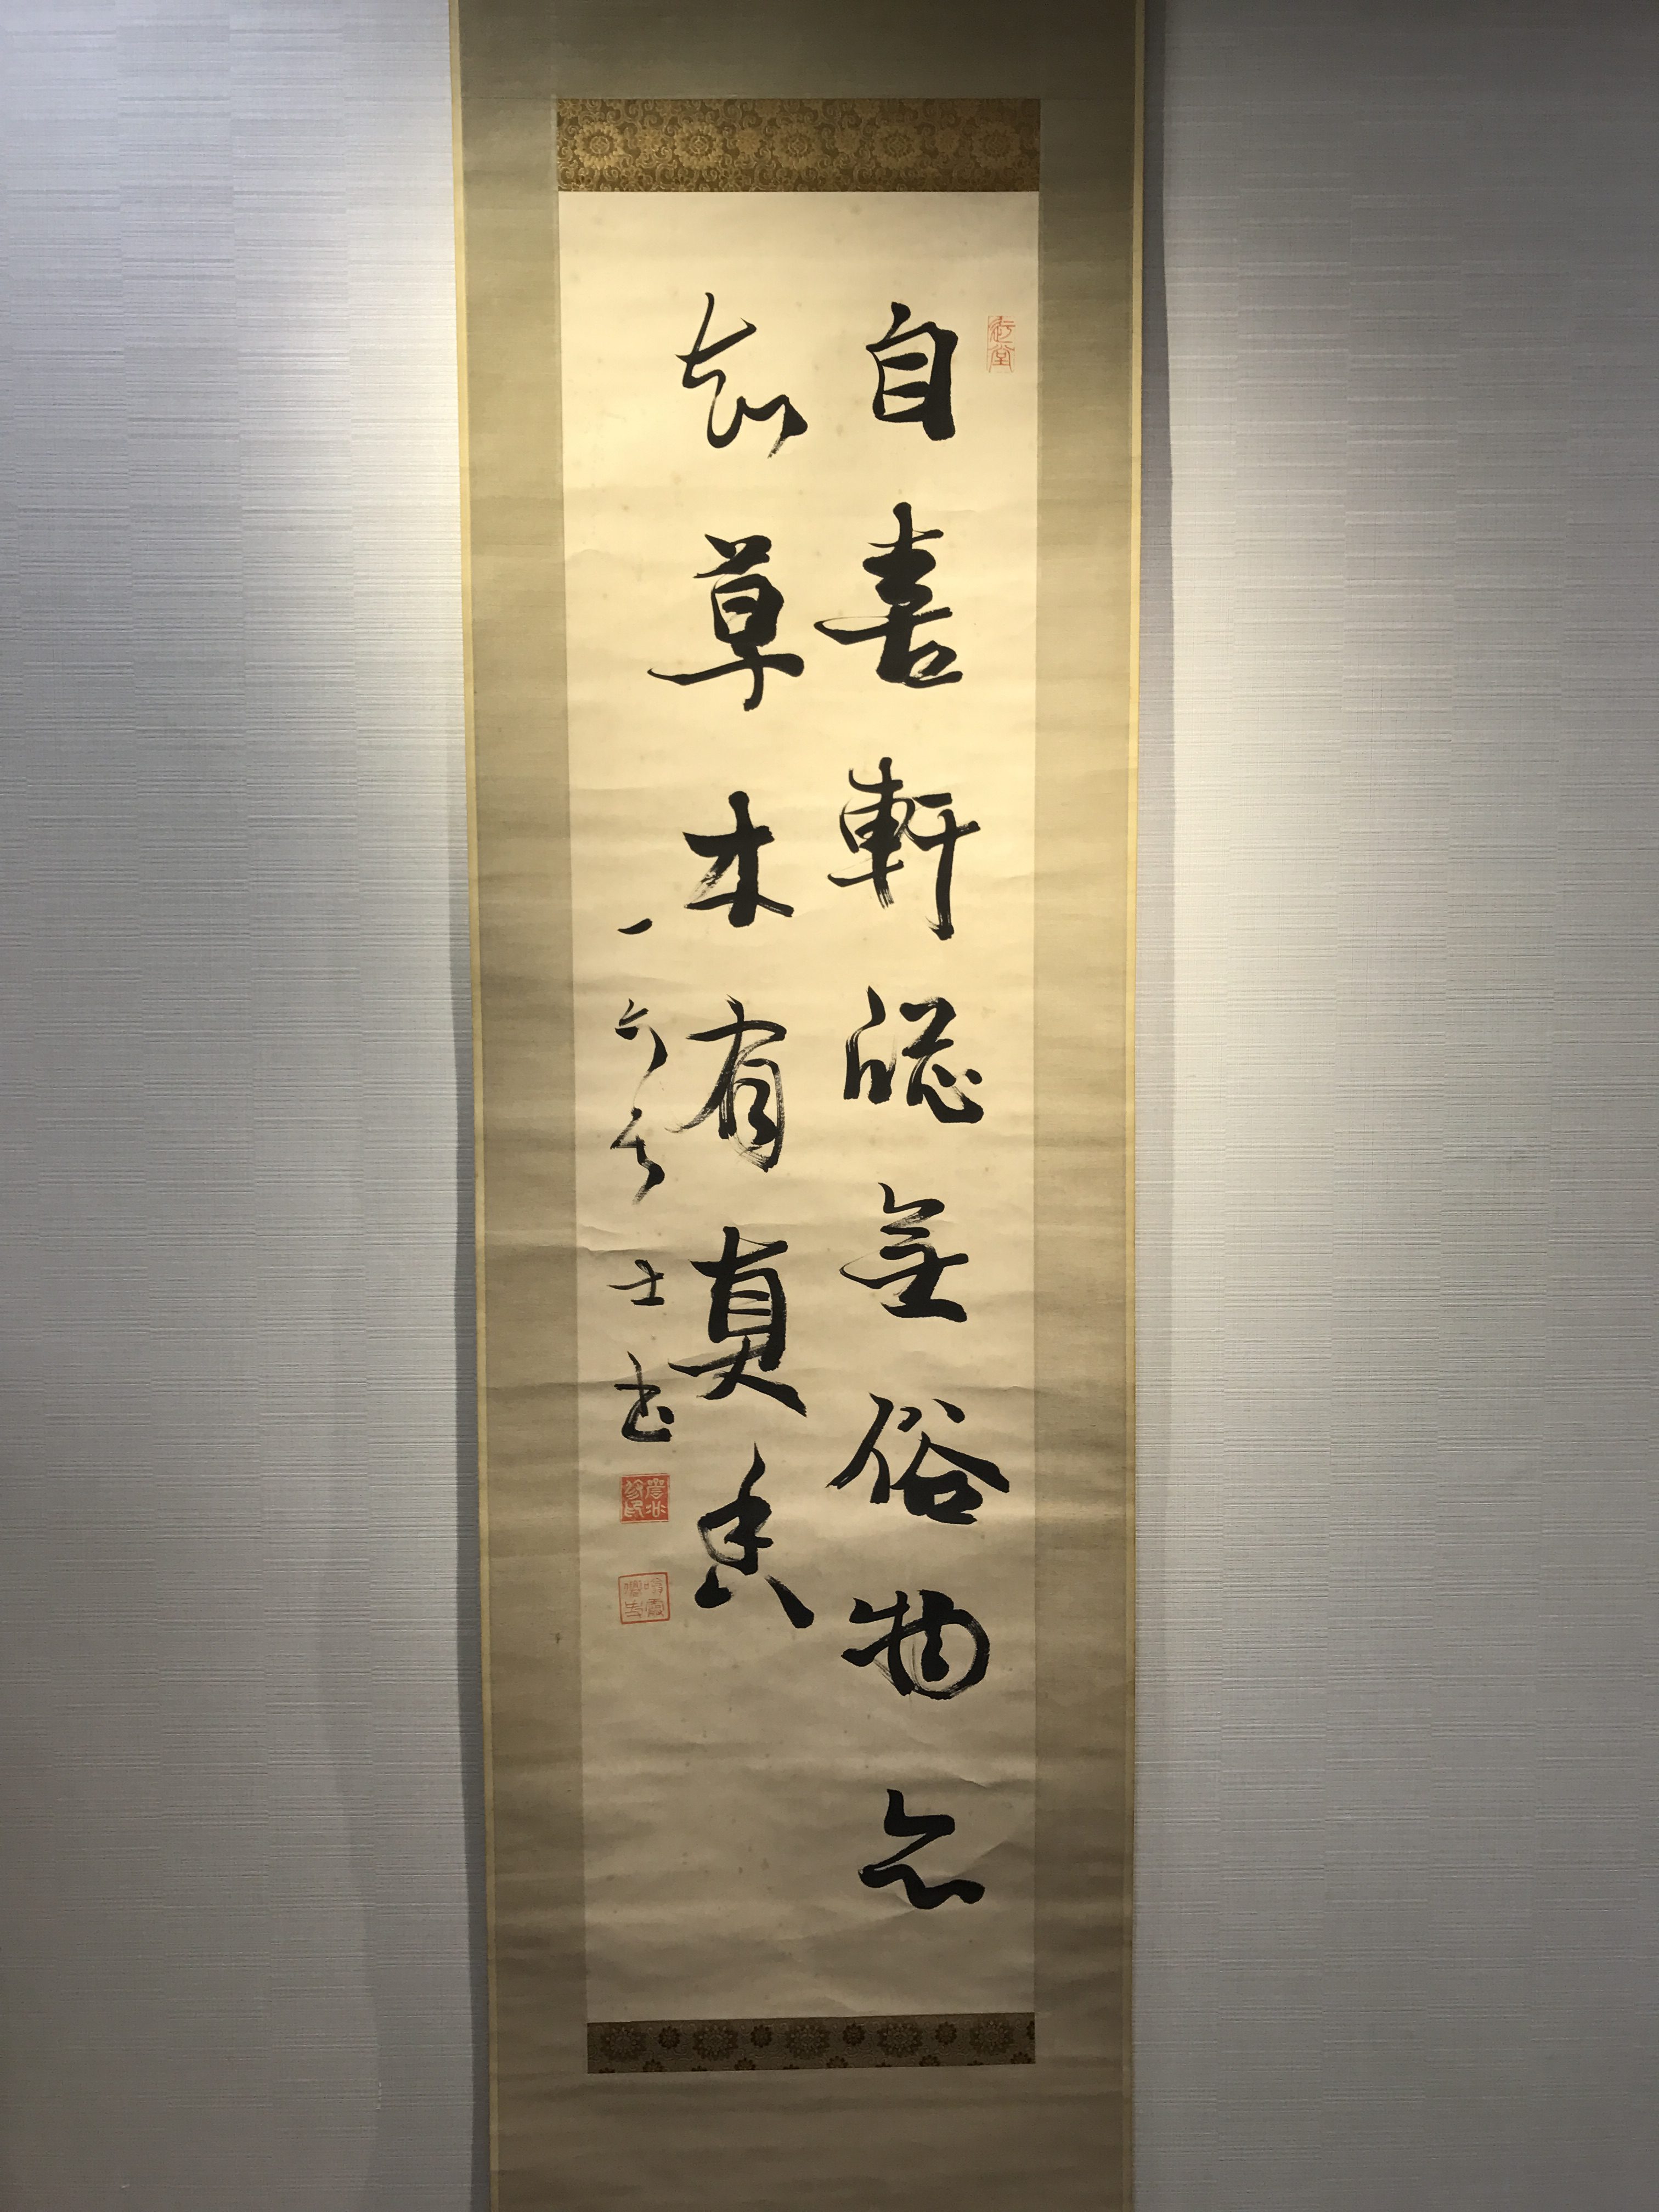 自喜軒牕無俗物亦
知草木有真香
一六居士書